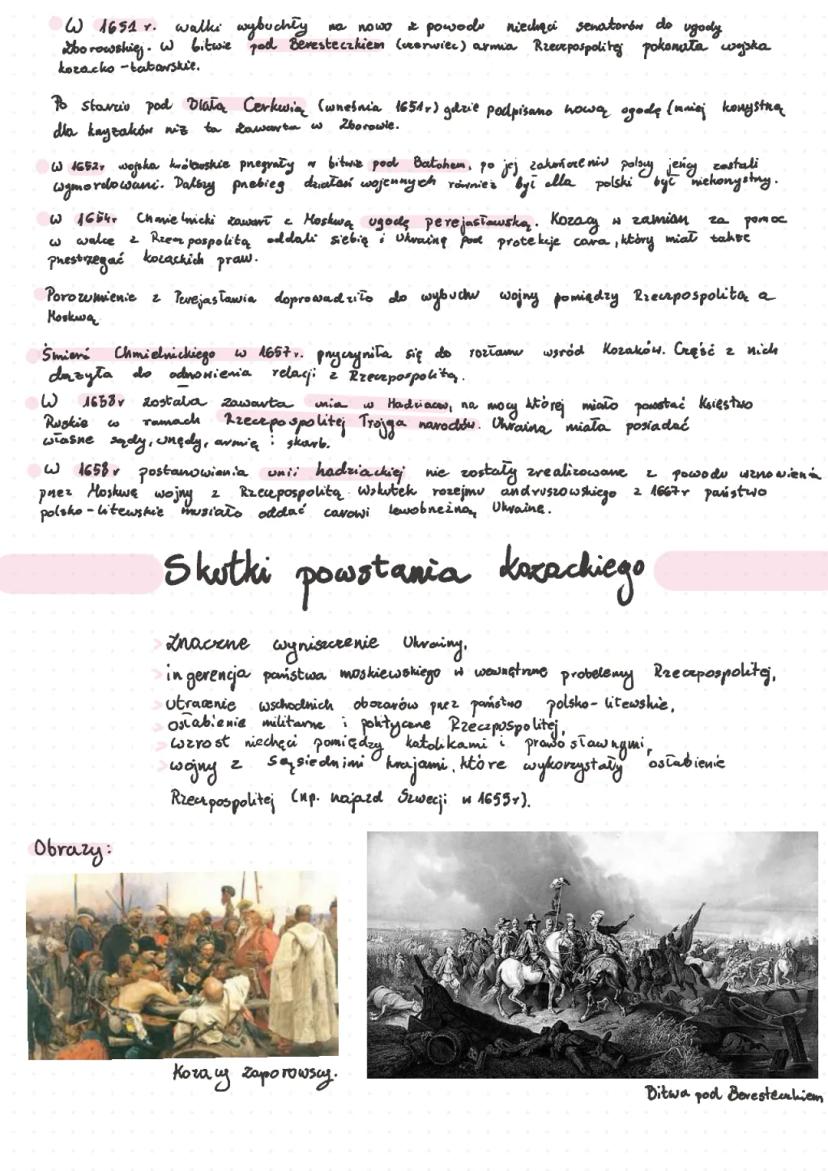 W 1651 r. walki wybuchły na nowo z powodu niechęci senatorów do ugody
Zborowskiej. W bitwie pod Beresteczkiem (czerwiec) armia Rzeczpospolitej pokonała wojska
kozacko-tatarskie.
Po starciu pod Białą Cerkwią (września 1651r) gdzie podpisano nową ugodę (mniej korzystną
dla kozaków niż ta zawarta w Zborowie.
W 1652r wojska królewskie przegrały w bitwie pod Batohem, po jej zakończeniu polscy jeńcy zostali
wymordowani. Dalszy przebieg działań wojennych również był dla polski był niekorzystny.
W 1654r Chmielnicki zawarł z Moskwą ugodę perejasławską. Kozacy w zamian za pomoc
w walce z Rzeczpospolitą oddali siebie i Ukrainę pod protekcje cara, który miał także
przestrzegać kozackich praw.
Porozumienie z Perejasławia doprowadziło do wybuchu wojny pomiędzy Rzeczpospolitą a
Moskwą
Śmierć Chmielnickiego w 1657r. przyczyniła się do rozłamu wśród Kozaków. Część z nich
dążyła do odnowienia relacji z Rzeczpospolitą.
W 1658r została zawarta unia w Hadziaczu, na mocy której miało powstać Księstwo
Ruskie w ramach Rzeczpospolitej Trojga narodów. Ukraina miała posiadać
własne sądy, urzędy, armię i skarb.
W 1658r postanowienia unii hadziackiej nie zostały zrealizowane z powodu wznowienia
przez Moskwę wojny z Rzeczpospolitą. Wskutek rozejmu andruszowskiego z 1667r państwo
polsko-litewskie musiało oddać carowi lewobrzeżną Ukrainę.
Skutki powstania kozackiego
> znaczne wyniszczenie Ukrainy,
> ingerencja państwa moskiewskiego w wewnętrzne probelemy Rzeczpospolitej,
> utracenie wschodnich obszarów przez państwo polsko-litewskie,
> osłabienie militarne i polityczne Rzeczpospolitej,
> wzrost niechęci pomiędzy katolikami i prawosławnymi,
> wojny z sąsiednimi krajami, które wykorzystały osłabienie
Rzeczpospolitej (np. najazd Szwecji w 1655r).
Obrazy:
Kozacy zaporowscy.
Bitwa pod Beresteczkiem